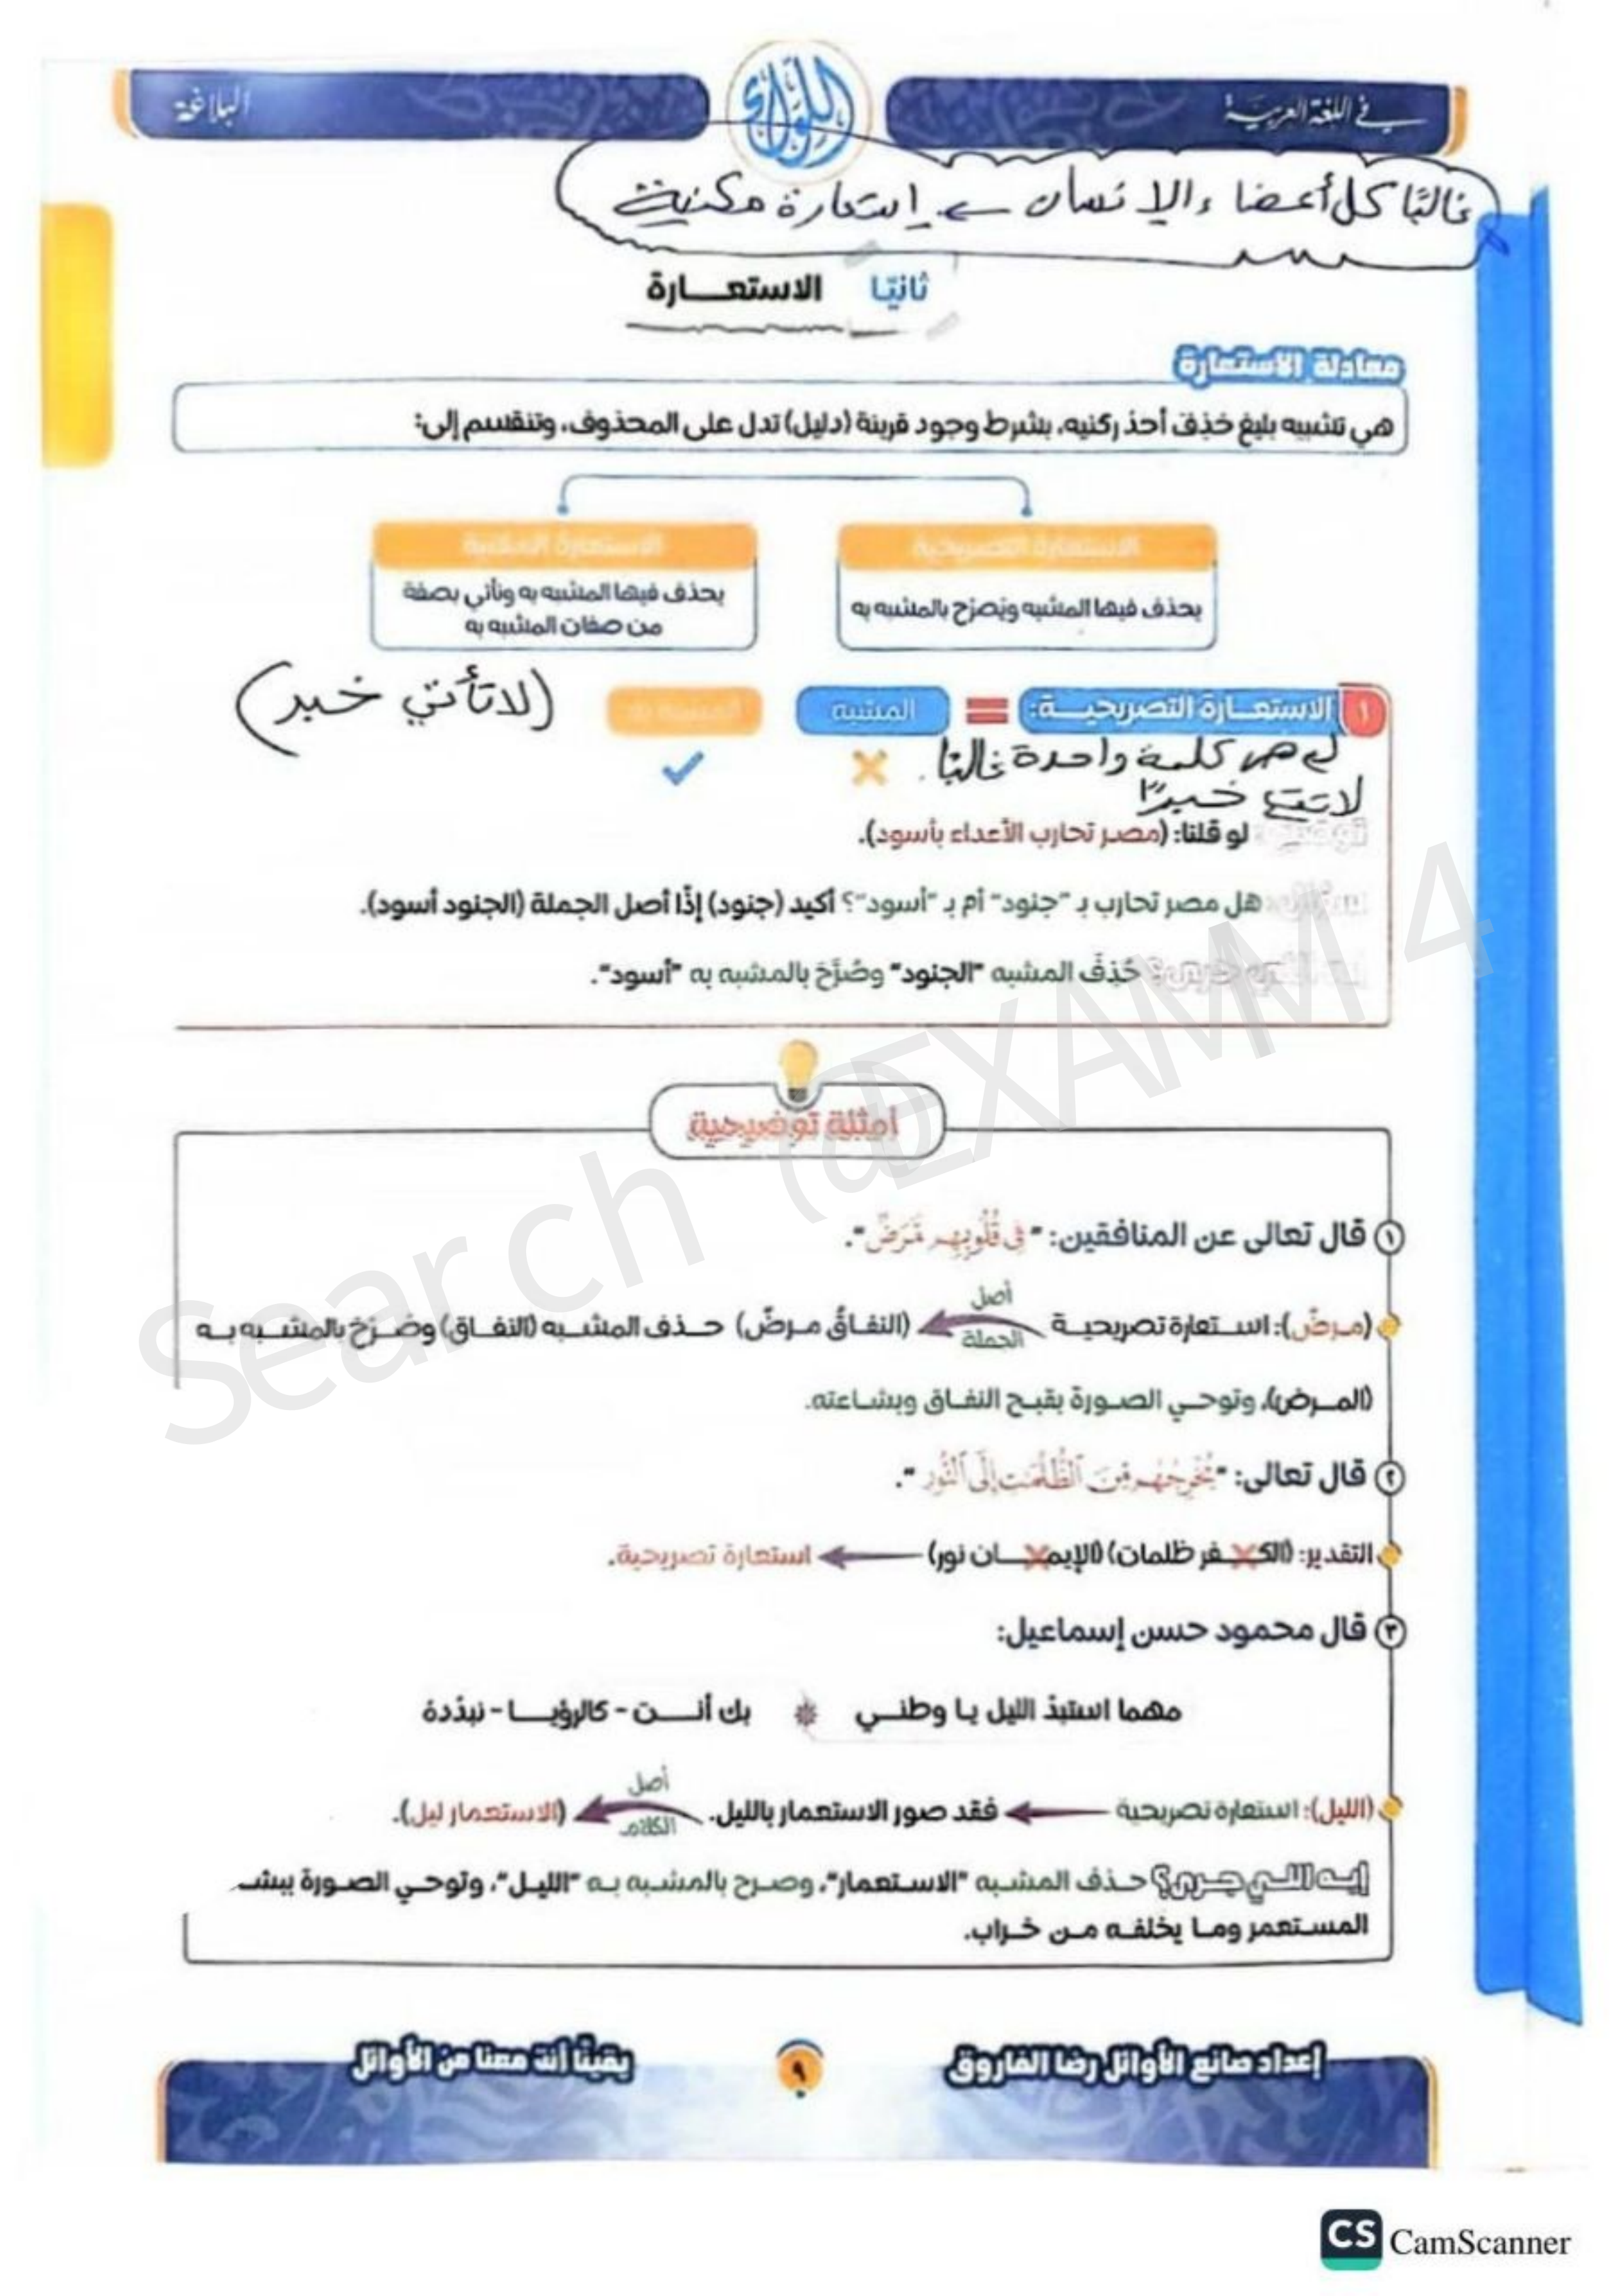 في اللغة العربية
اللؤلؤ
البلاغة
غالبًا كل أعضاء الإنسان ← استعارة مكنية
ثانيًا الاستعـــارة
معادلة الاستعارة
هي تشبيه بليغ حُذِفَ أحد ركنيه، بشرط وجود قرينة (دليل) تدل على المحذوف، وتنقسم إلى:
الاستعارة التصريحية
الاستعارة المكنية
يحذف فيها المشبه ويُصرَّح بالمشبه به
يحذف فيها المشبه به ونأتي بصفة
من صفات المشبه به
١ الاستعــارة التصريحيــة: = المشبه المشبه به (لا تأتي خبر)
هي كلمة واحدة غالبًا.
لا تقع خبرًا
توضيح: لو قلنا: (مصر تحارب الأعداء بأسود).
سؤال: هل مصر تحارب بـ "جنود" أم بـ "أسود"؟ أكيد (جنود) إذًا أصل الجملة (الجنود أسود).
إيه اللي جرى؟ حُذِفَ المشبه "الجنود" وصُرَّحَ بالمشبه به "أسود".
أمثلة توضيحية
١ قال تعالى عن المنافقين: "فِي قُلُوبِهِم مَّرَضٌ".
(مـرضٌ): استـعارة تصريحيـة أصل الجملة (النفاقُ مـرضٌ) حـذف المشـبه (النفـاق) وصُـرَّحَ بالمشـبه بـه
(المـرض)، وتوحـي الصـورة بقبـح النفـاق وبشـاعته.
٢ قال تعالى: "يُخْرِجُهُم مِّنَ ٱلظُّلُمَٰتِ إِلَى ٱلنُّورِ".
التقدير: (الكــفر ظلمات) (الإيمــان نور) استعارة تصريحية.
٣ قال محمود حسن إسماعيل:
مهما استبدّ الليل يـا وطنـي بك أنــت - كالرؤيــا - نبدّدهُ
(الليل): استعارة تصريحية فقد صور الاستعمار بالليل. أصل الكلام (الاستعمار ليل).
إيـه اللـي جـرى؟ حـذف المشبه "الاسـتعمار"، وصـرح بالمشـبه بـه "الليـل"، وتوحـي الصـورة ببشـ
المسـتعمر ومـا يخلفـه مـن خـراب.
Search @EXAMM4
إعداد صانع الأوائل رضا الفاروق
٩
يقينًا أنت معنا من الأوائل
CS CamScanner